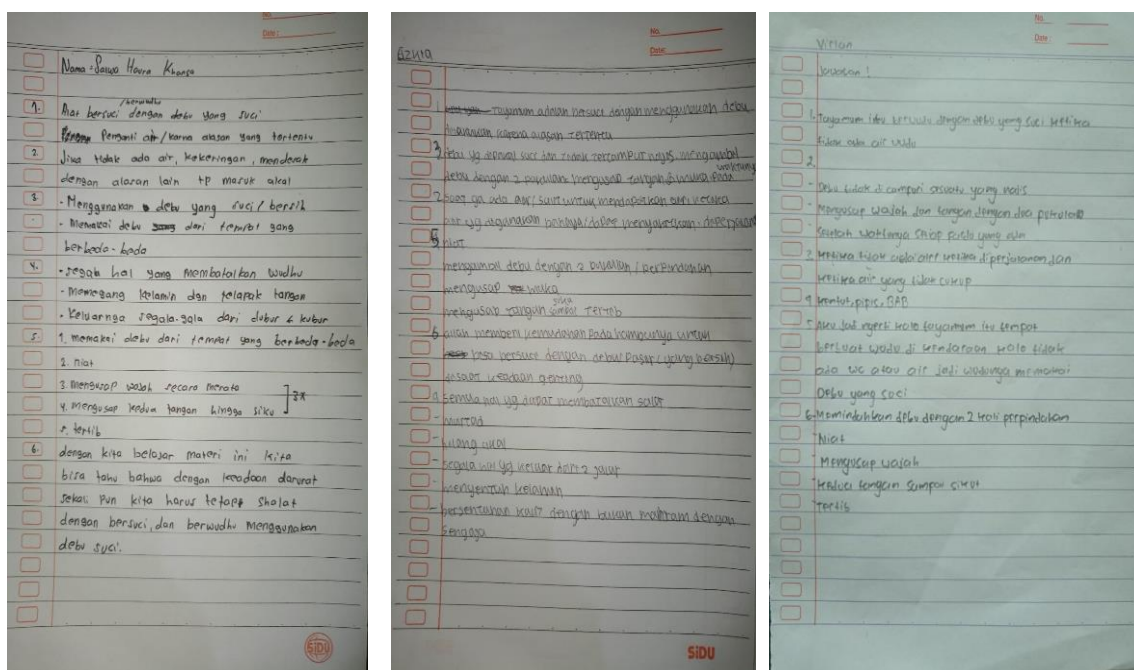 No.
Date:
Nama : Salwa Haura Khansa
1. Alat bersuci /berwudhu dengan debu yang suci
Penganti air / karna alasan yang tertentu
2. Jika tidak ada air, kekeringan, mendesak
dengan alasan lain tp masuk akal
3. - Menggunakan debu yang suci / bersih
- Memakai debu dari tempat yang
berbeda-beda
4. - segala hal yang membatalkan wudhu
- Memegang kelamin dgn telapak tangan
- Keluarnya segala-gala dari dubur & kubur
5. 1. memakai debu dari tempat yang berbeda-beda
2. niat
3. mengusap wajah secara merata
4. mengusap kedua tangan hingga siku ] 2x
5. tertib
6. dengan kita belajar materi ini kita
bisa tahu bahwa dengan keadaan darurat
sekali pun kita harus tetap shalat
dengan bersuci, dan berwudhu menggunakan
debu suci.
SiDU
No.
Date:
1. Tayamum adalah bersuci dengan menggunakan debu
karena alasan tertentu
3. debu yg suci dan tidak tercampur najis, mengambil
debu dengan 2 pukulan, mengusap tangan & muka pada waktunya
2. ga ada air / sulit untuk mendapatkan air, ketika
air yg digunakan
5. niat
mengambil debu dengan 2 pukulan / perpindahan
mengusap muka
mengusap tangan siku tertib
6. allah memberi kemudahan pada hambanya untuk
bisa bersuci dengan debu / Pasir (yang bersih)
disaat keadaan genting
semua hal yg dapat membatalkan
- murtad
- hilang akal
- segala hal yg keluar dari 2 jalur
- menyentuh kelamin
- bersentuhan kulit dengan bukan mahram dengan
sengaja
SiDU
No.
Date:
Jawaban !
1. Tayamum itu berwudu dengan debu yang suci ketika
tidak ada air wudu
2.
- Debu tidak di campuri sesuatu yang najis
- Mengusap wajah dan tangan dengan dua pukulan
- Setelah waktunya
3. Ketika tidak ada air ketika diperjalanan dan
ketika air yang tidak cukup
4. kentut, pipis, BAB
5. Aku jadi ngerti kalo tayamum itu tempat
berbuat wudu di kendaraan kalo tidak
ada wc atau air jadi wudunya memakai
Debu yang suci
6. Memindahkan debu dengan 2 kali perpindahan
Niat
Mengusap wajah
kedua tangan sampai sikut
Tertib